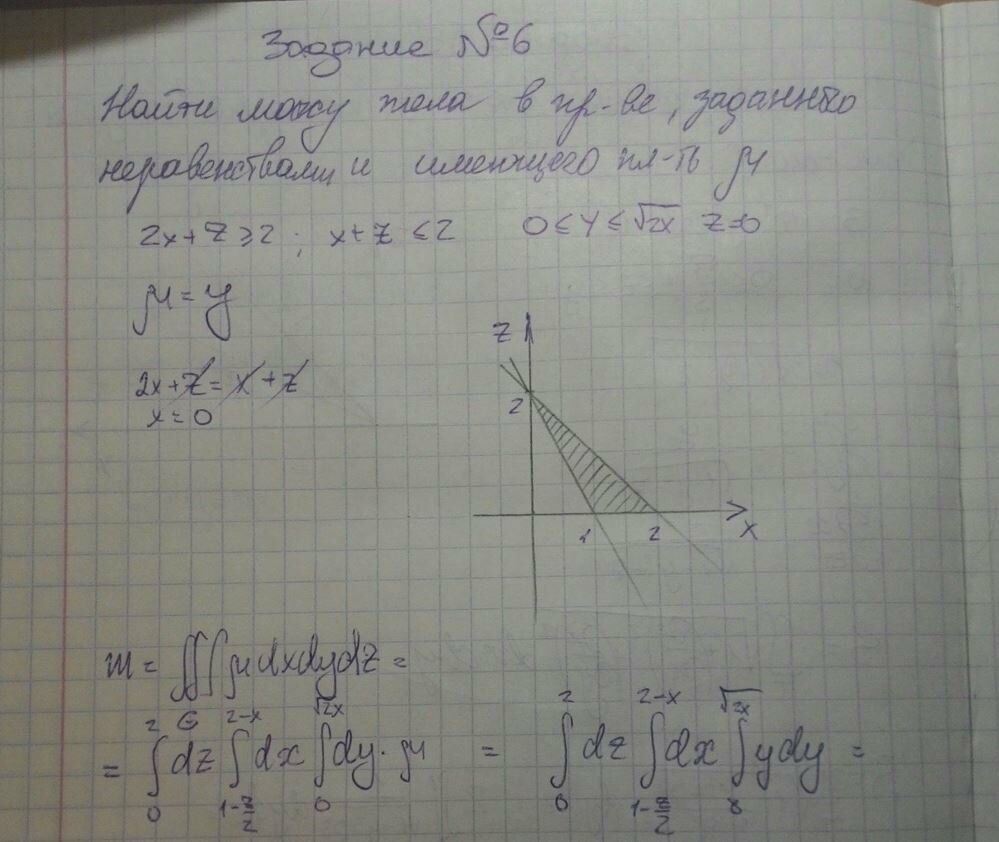 Задание №6
Найти массу тела в пр-ве, заданного
неравенствами и имеющего пл-ть μ
2x+z≥2; x+z≤2 0≤y≤√2x z≥0
μ=y
2x+z=x+z
x=0
z
2
1 2 x
m=∭μdxdydz=
G
=∫₀²dz∫_{1-z/2}^{2-x}dx∫₀^{√2x}dy·μ = ∫₀²dz∫_{1-z/2}^{2-x}dx∫₀^{√2x}ydy=